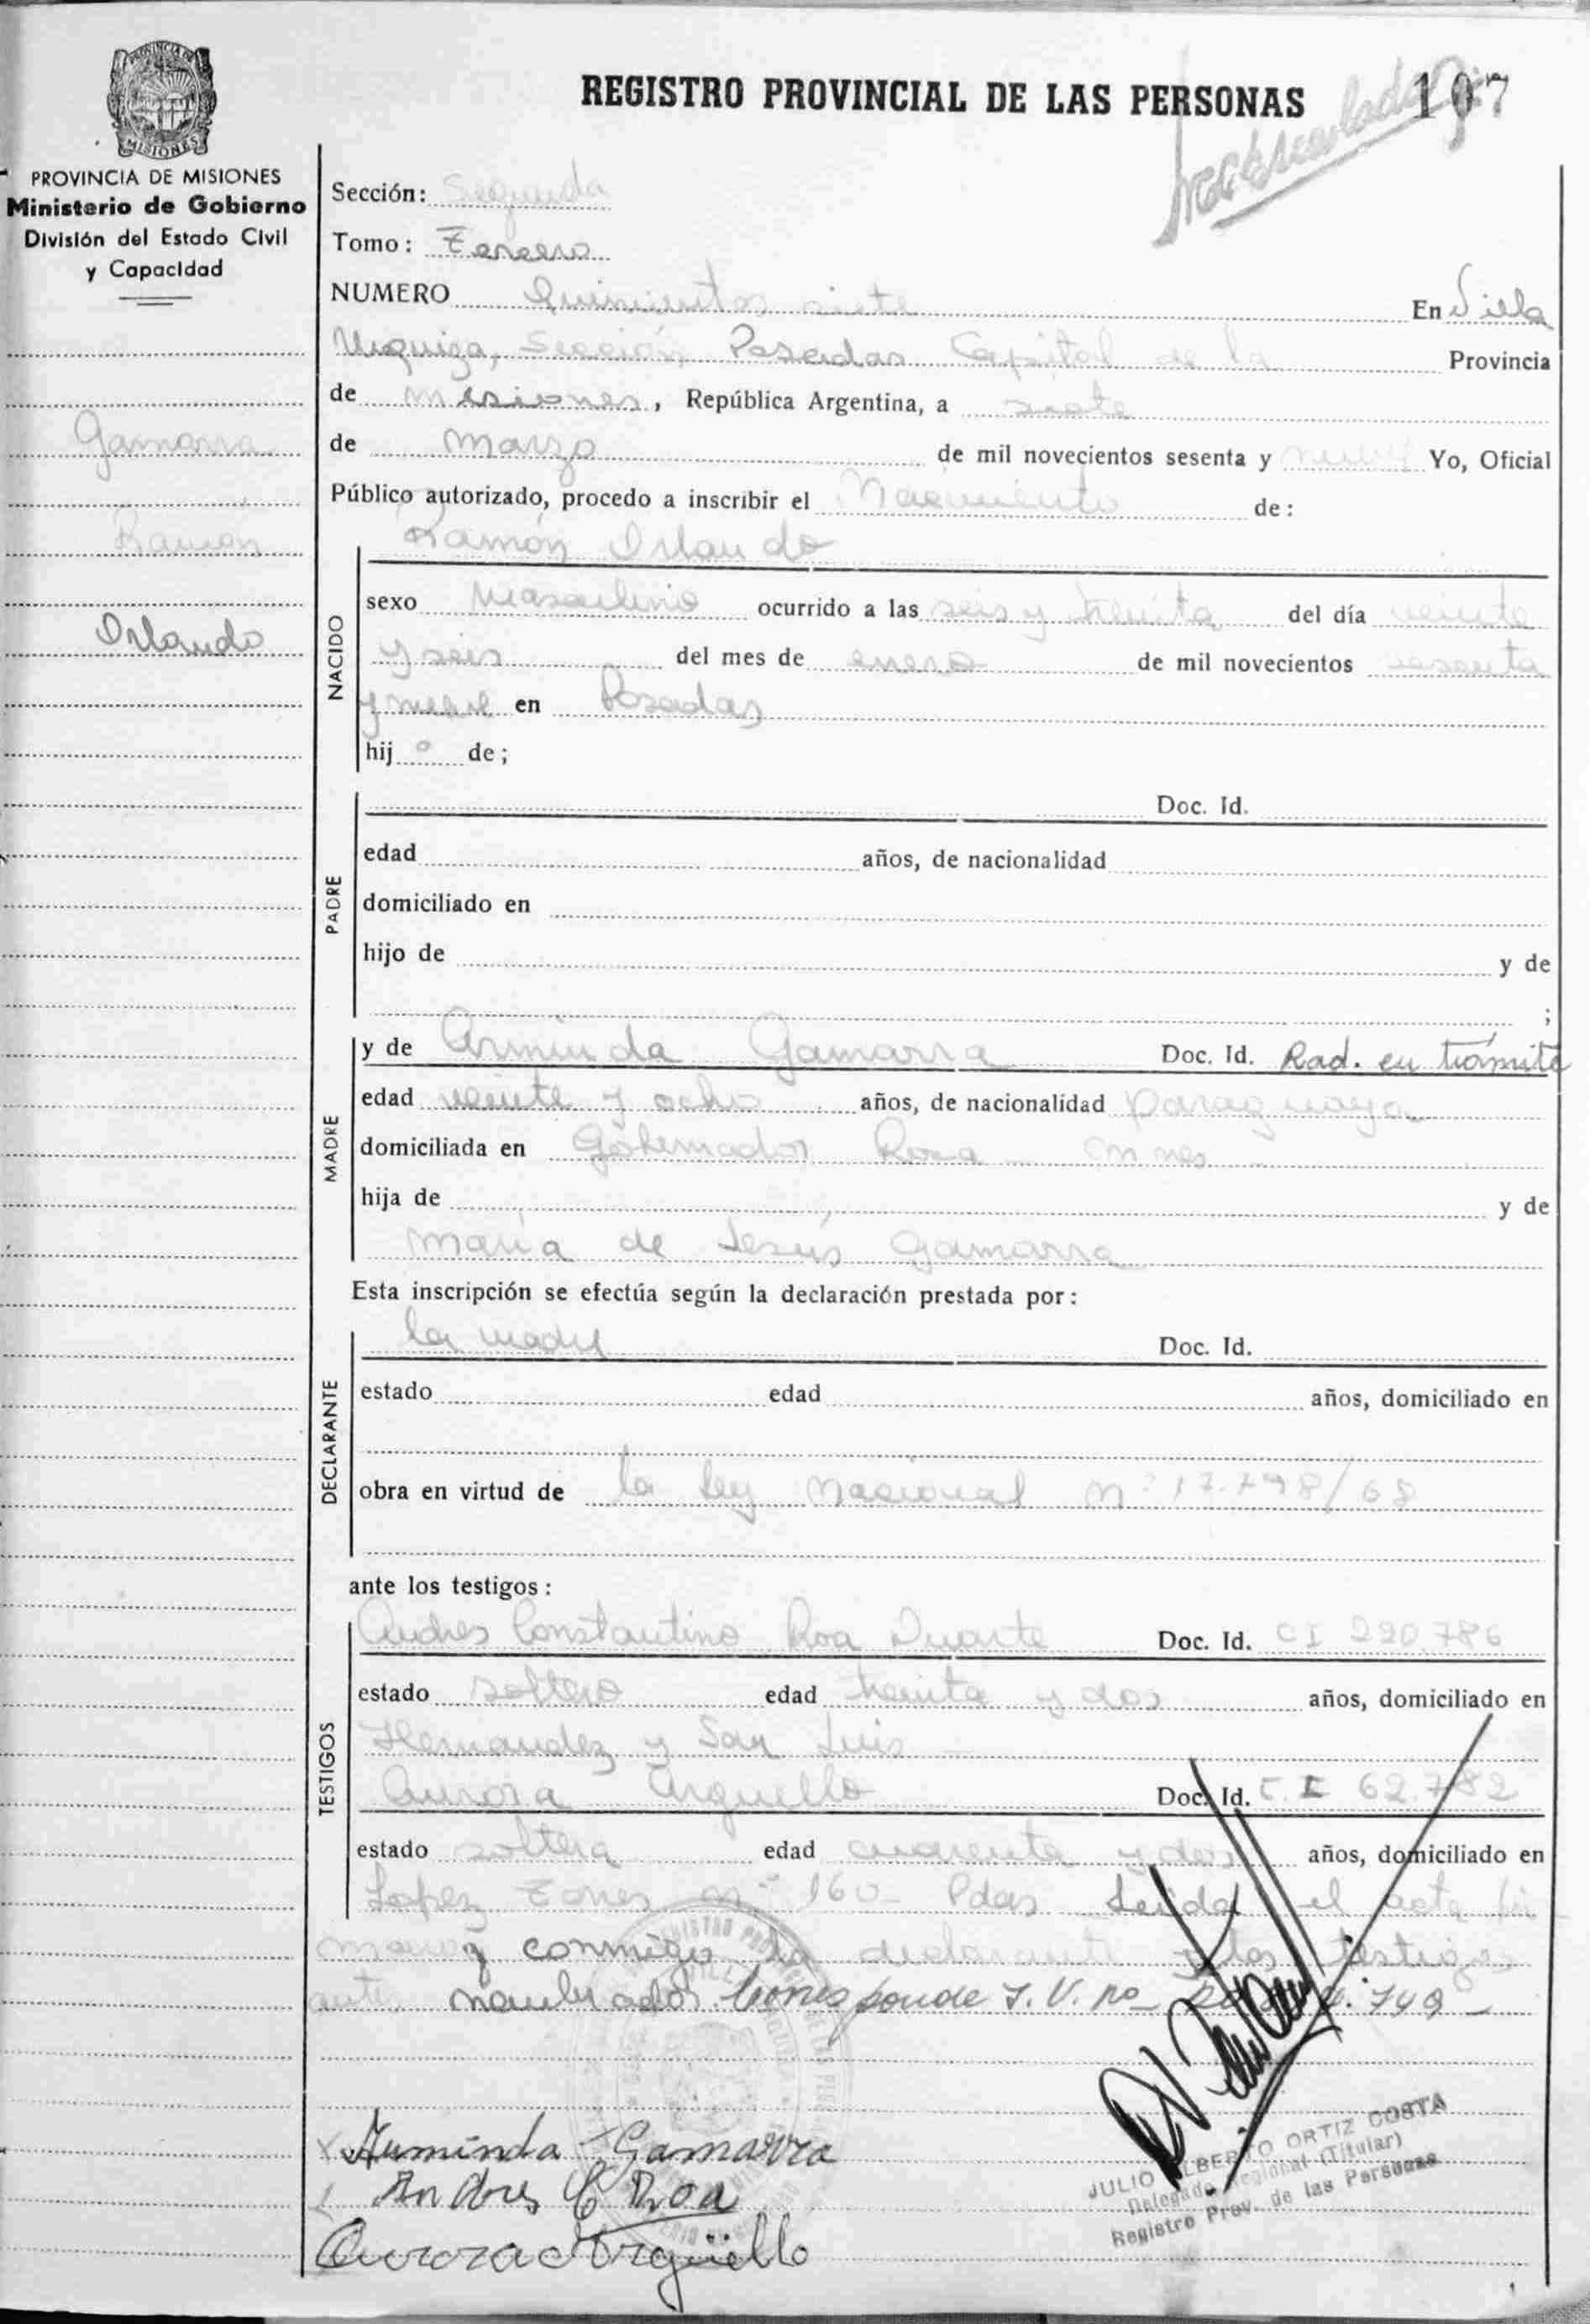 PROVINCIA DE
MISIONES
REGISTRO PROVINCIAL DE LAS PERSONAS 107
PROVINCIA DE MISIONES
Ministerio de Gobierno
División del Estado Civil
y Capacidad
Gamarra
Ramón
Orlando
Sección: Segunda
Tomo: Tercero
NUMERO Quinientos siete En Villa
Urquiza, Sección Posadas Capital de la Provincia
de Misiones, República Argentina, a siete
de marzo de mil novecientos sesenta y nueve Yo, Oficial
Público autorizado, procedo a inscribir el Nacimiento de:
Ramón Orlando
NACIDO
sexo Masculino ocurrido a las seis y treinta del día veinte
y seis del mes de enero de mil novecientos sesenta
y nueve en Posadas
hij o de;
PADRE
Doc. Id.
edad años, de nacionalidad
domiciliado en
hijo de y de
;
MADRE
y de Arminda Gamarra Doc. Id. Rad. en trámite
edad veinte y ocho años, de nacionalidad paraguaya
domiciliada en Gobernador Roca Mnes
hija de y de
María de Jesús Gamarra
Esta inscripción se efectúa según la declaración prestada por:
DECLARANTE
la madre Doc. Id.
estado edad años, domiciliado en
obra en virtud de la ley Nacional Nº 17.798/68
ante los testigos:
TESTIGOS
Andres Constantino Roa Duarte Doc. Id. CI 290.786
estado soltero edad treinta y dos años, domiciliado en
Hernandez y San Luis
Aurora Arguello Doc. Id. C.I 62.782
estado soltera edad cuarenta y dos años, domiciliado en
Lopez Torres nº 160 Pdas Leida el acta fir
man conmigo la declarante y los testigos
antes nombrados. Corresponde I. V. no
Arminda Gamarra
Andres C Roa
Aurora Argüello
JULIO ALBERTO ORTIZ COSTA
Delegado Regional (Titular)
Registro Prov. de las Personas